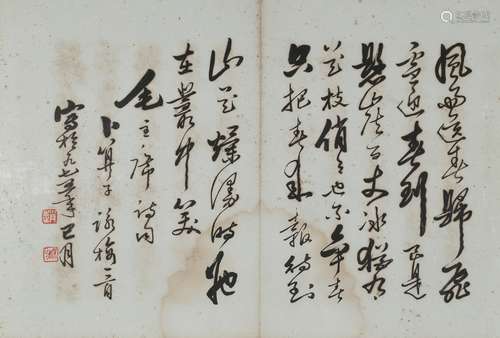 風雨送春歸飛
雪迎春到已是
懸崖百丈冰猶有
花枝俏々也不爭春
只把春來報待到
山花爛漫時她
在叢中笑
毛主席詩詞
卜算子詠梅一首
寫於一九七五年 月